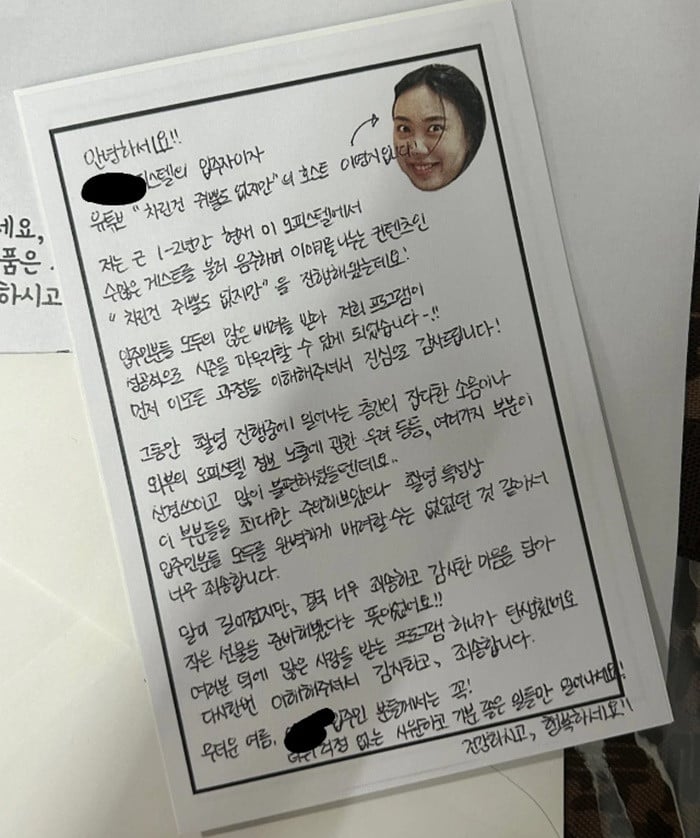 안녕하세요!!
스텔의 입주자이자
유튜브 "차린건 쥐뿔도 없지만"의 호스트 이영지입니다!
저는 근 1-2년간 현재 이 오피스텔에서
수많은 게스트를 불러 음주하며 이야기를 나누는 컨텐츠인
"차린건 쥐뿔도 없지만"을 진행해왔는데요!
입주민분들 모두의 많은 배려를 받아 저희 프로그램이
성공적으로 시즌을 마무리할 수 있게 되었습니다-!!
먼저 이모든 과정을 이해해주셔서 진심으로 감사드립니다!
그동안 촬영 진행중에 일어나는 층간의 잡다한 소음이나
외부의 오피스텔 정보 노출에 관한 우려 등등, 여러가지 부분이
신경쓰이고 많이 불편하셨을텐데요..
이 부분들을 최대한 주의해보았으나 촬영 특성상
입주민분들 모두를 완벽하게 배려할 수는 없었던 것 같아서
너무 죄송합니다.
말이 길어졌지만, 결국 너무 죄송하고 감사한 마음을 담아
작은 선물을 준비해봤다는 뜻이었어요!!
여러분 덕에 많은 사랑을 받는 프로그램 하나가 탄생했어요
다시한번 이해해주셔서 감사하고, 죄송합니다.
무더운 여름, 입주민 분들께서는 꼭!
더위 걱정 없는 시원하고 기분 좋은 일들만 일어나세요!
건강하시고, 행복하세요!!
세요,
품은
하시고